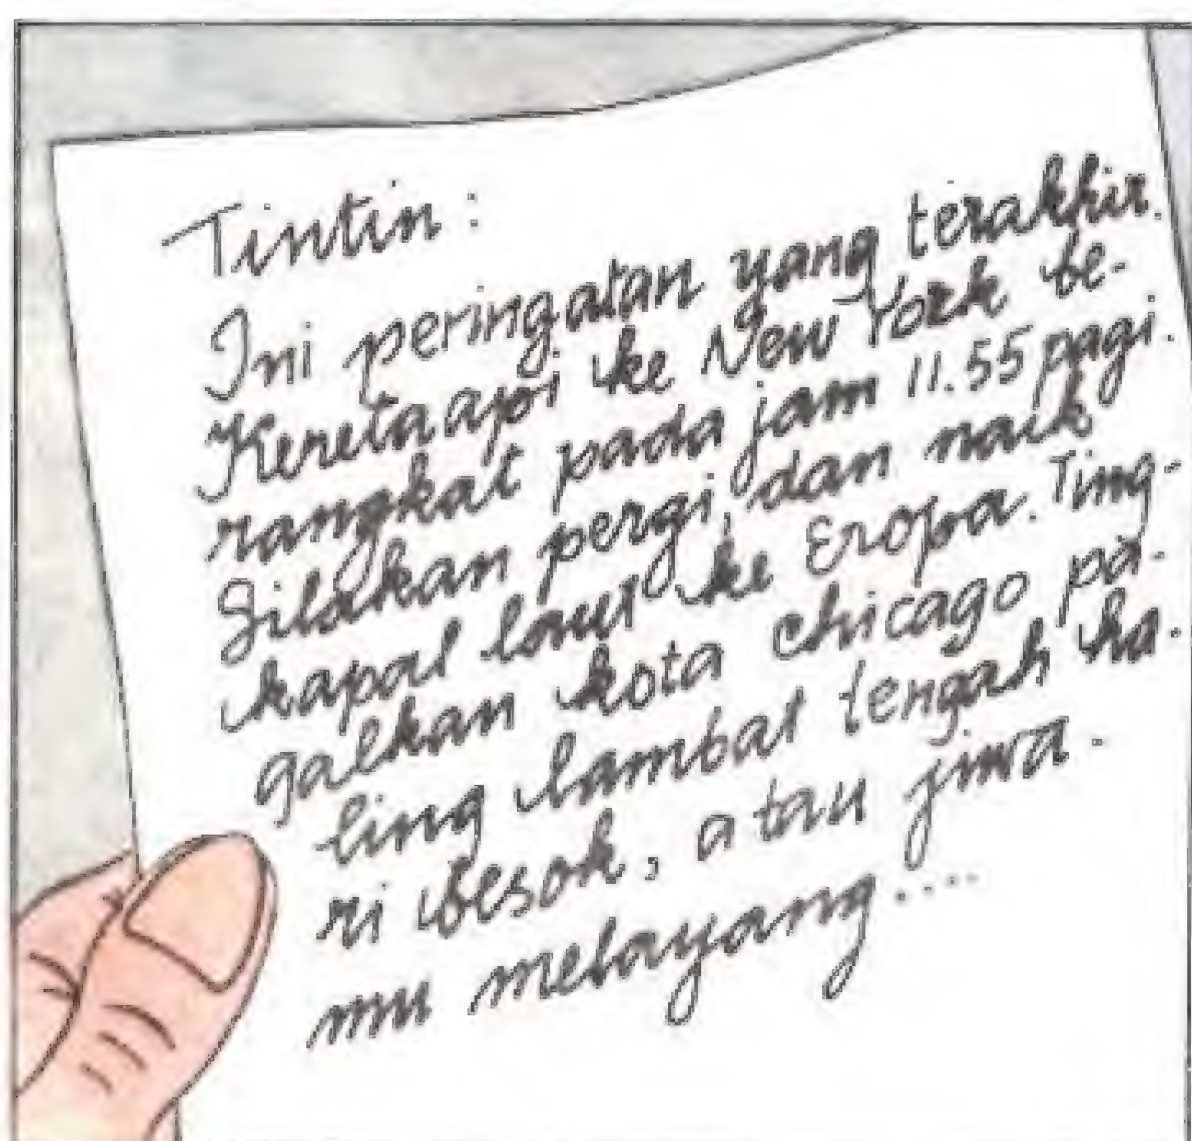 Tintin :
Ini peringatan yang terakhir.
Kereta api ke New York be-
rangkat pada jam 11.55 pagi.
Silakan pergi, dan naik
kapal laut ke Eropa. Ting-
galkan kota chicago pa-
ling lambat tengah ha-
ri besok, atau jiwa-
mu melayang....